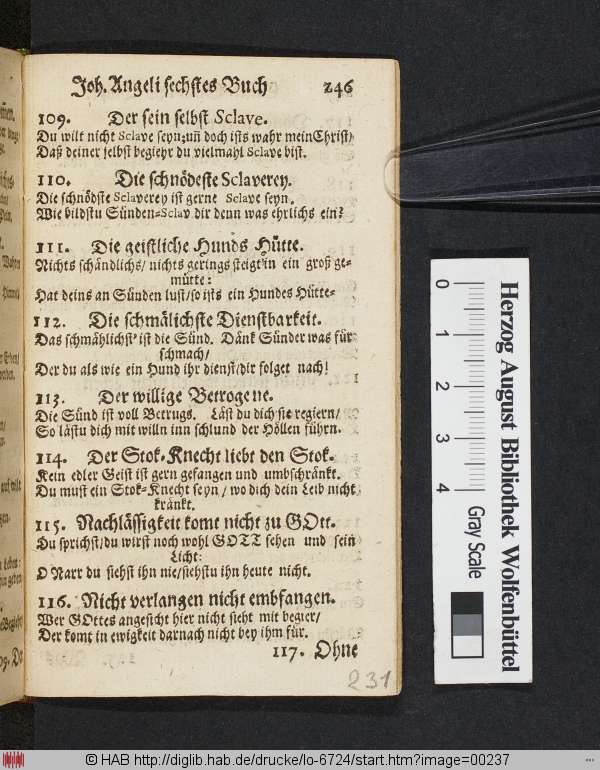 Joh. Angeli sechstes Buch 246
109. Der sein selbst Sclave.
Du wilt nicht Sclave seyn: uñ doch ists wahr mein Christ/
Daß deiner selbst begiehr du vielmahl Sclave bist.
110. Die schnödeste Sclaverey.
Die schnödste Sclaverey ist gerne Sclave seyn,
Wie bildstu Sünden-Sclav dir denn was ehrlichs ein?
111. Die geistliche Hunds Hütte.
Nichts schändlichs/ nichts gerings steigt'in ein groß ge-
mütte:
Hat deins an Sünden lust/ so ists ein Hundes Hütte-
112. Die schmälichste Dienstbarkeit.
Das schmählichst' ist die Sünd. Dänk Sünder was für
schmach/
Der du als wie ein Hund ihr dienst/ dir folget nach!
113. Der willige Betrogene.
Die Sünd ist voll Betrugs. Läst du dich sie regiern/
So lästu dich mit willn inn schlund der Höllen führn.
114. Der Stok-Knecht liebt den Stok.
Kein edler Geist ist gern gefangen und umbschränkt.
Du must ein Stok-Knecht seyn/ wo dich dein Leib nicht
kränkt.
115. Nachlässigkeit komt nicht zu GOtt.
Du sprichst/ du wirst noch wohl GOTT sehen und sein
Licht:
O Narr du siehst ihn nie/ siehstu ihn heute nicht.
116. Nicht verlangen nicht embfangen.
Wer GOttes angesicht hier nicht sieht mit begier/
Der komt in ewigkeit darnach nicht bey ihm für.
117. Ohne
231
0
1
2
3
4
Gray Scale
Herzog August Bibliothek Wolfenbüttel
© HAB http://diglib.hab.de/drucke/lo-6724/start.htm?image=00237